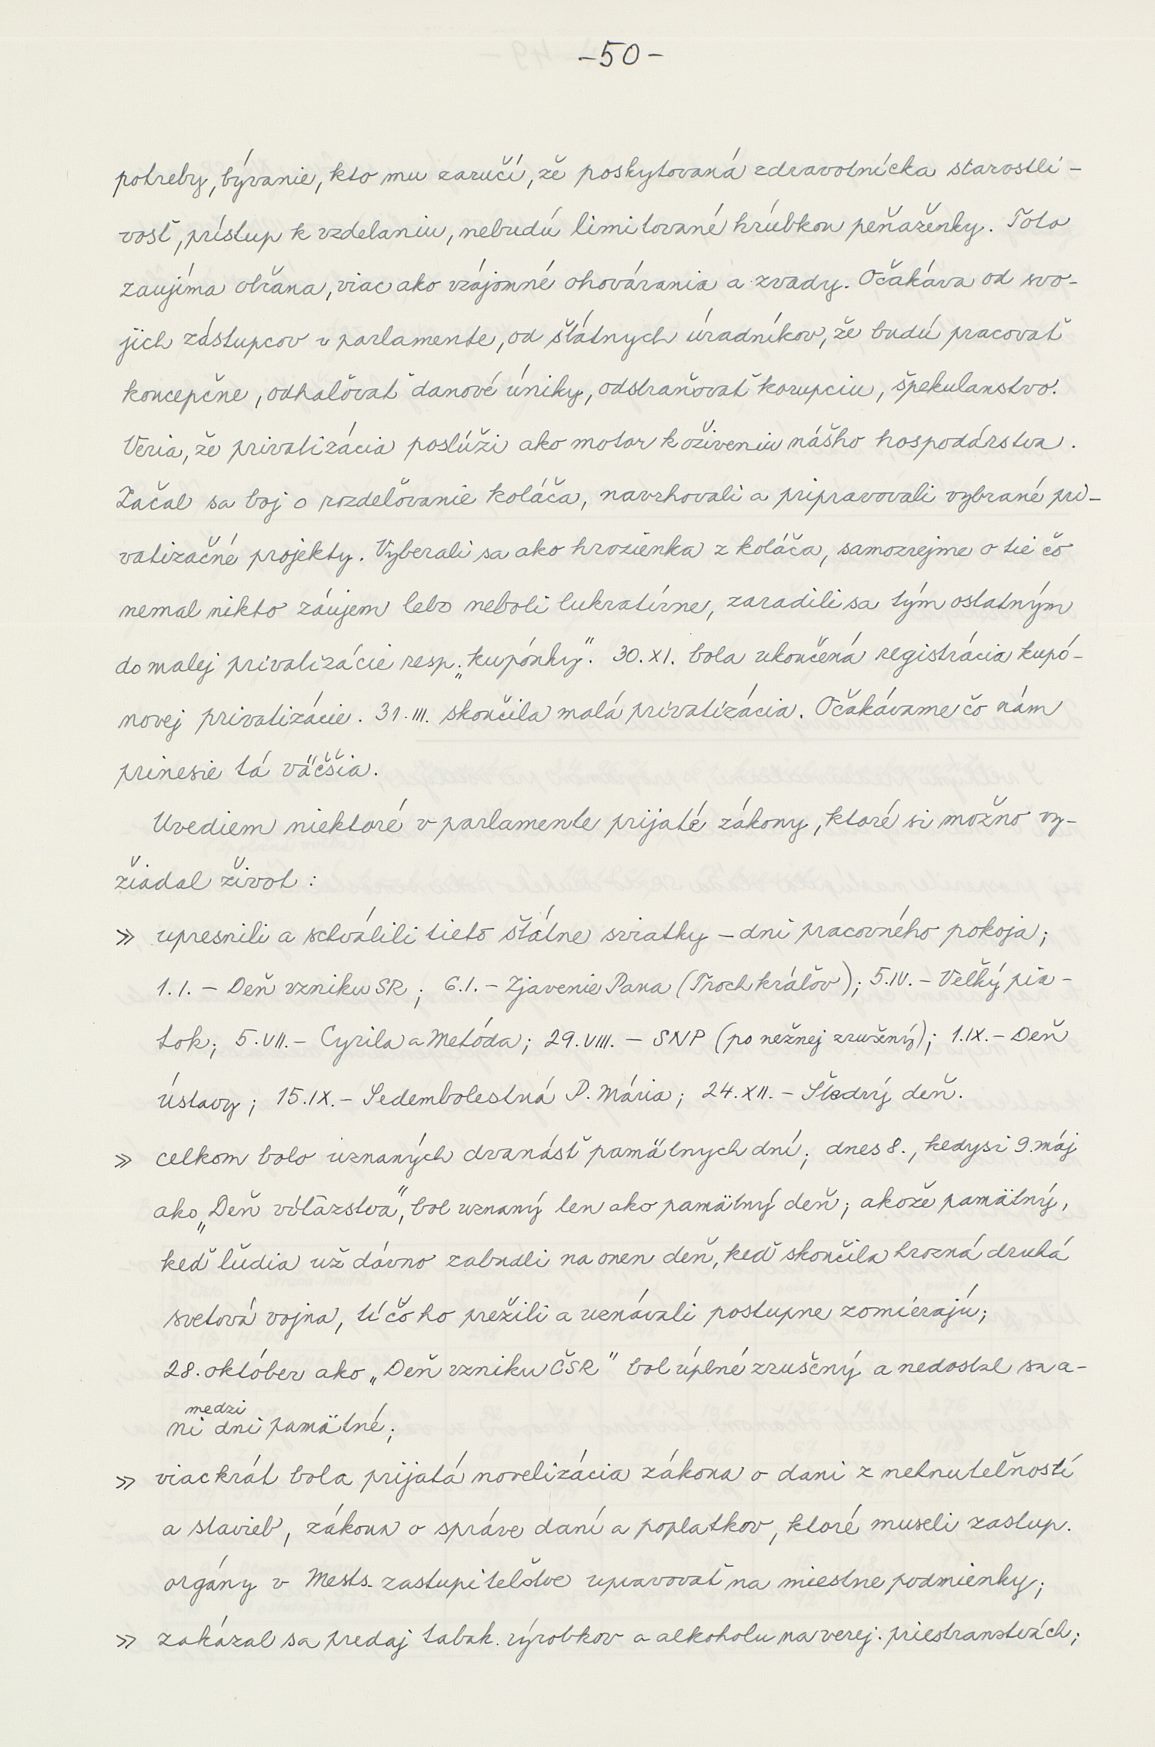 -50-
potreby, bývanie, kto mu zaručí, že poskytovaná zdravotnícka starostli-
vosť, prístup k vzdelaniu, nebudú limitované hrúbkou peňaženky. Toto
zaujíma občana, viac ako vzájomné ohovárania a zvady. Očakáva od svo-
jich zástupcov v parlamente, od štátnych úradníkov, že budú pracovať
koncepčne, odhaľovať daňové úniky, odstraňovať korupciu, špekulanstvo.
Veria, že privatizácia poslúži ako motor k oživeniu nášho hospodárstva.
Začal sa boj o rozdeľovanie koláča, navrhovali a pripravovali vybrané pri-
vatizačné projekty. Vyberali sa ako hrozienka z koláča, samozrejme o tie čo
nemal nikto záujem lebo neboli lukratívne, zaradili sa tým ostatným
do malej privatizácie resp. „kupónky". 30.XI. bola ukončená registrácia kupó-
novej privatizácie. 31.III. skončila malá privatizácia. Očakávame čo nám
prinesie tá väčšia.
Uvediem niektoré v parlamente prijaté zákony, ktoré si možno vy-
žiadal život:
» upresnili a schválili tieto štátne sviatky - dni pracovného pokoja;
1.I. - Deň vzniku SR; 6.I. - Zjavenie Pana (Troch kráľov); 5.IV. - Veľký pia-
tok; 5.VII. - Cyrila a Metóda; 29.VIII. - SNP (po nežnej zrušený); 1.IX. - Deň
ústavy; 15.IX. - Sedembolestná P. Mária; 24.XII. - Štedrý deň.
» celkom bolo uznaných dvanásť pamätnych dní; dnes 8., kedysi 9. máj
ako „Deň víťazstva", bol uznaný len ako pamätný deň; akože pamätný,
keď ľudia už dávno zabudli na onen deň, keď skončila hrozná druhá
svetová vojna, tí čo ho prežili a uznávali postupne zomierajú;
28. október ako „Deň vzniku ČSR" bol úplné zrušený a nedostal sa a-
ni medzi dni pamätné;
» viackrát bola prijatá novelizácia zákona o dani z nehnuteľností
a stavieb, zákona o správe daní a poplatkov, ktoré museli zastup.
orgány v Mests. zastupiteľstve upravovať na miestne podmienky;
» zakázal sa predaj tabak. výrobkov a alkoholu na verej. priestranstvách;